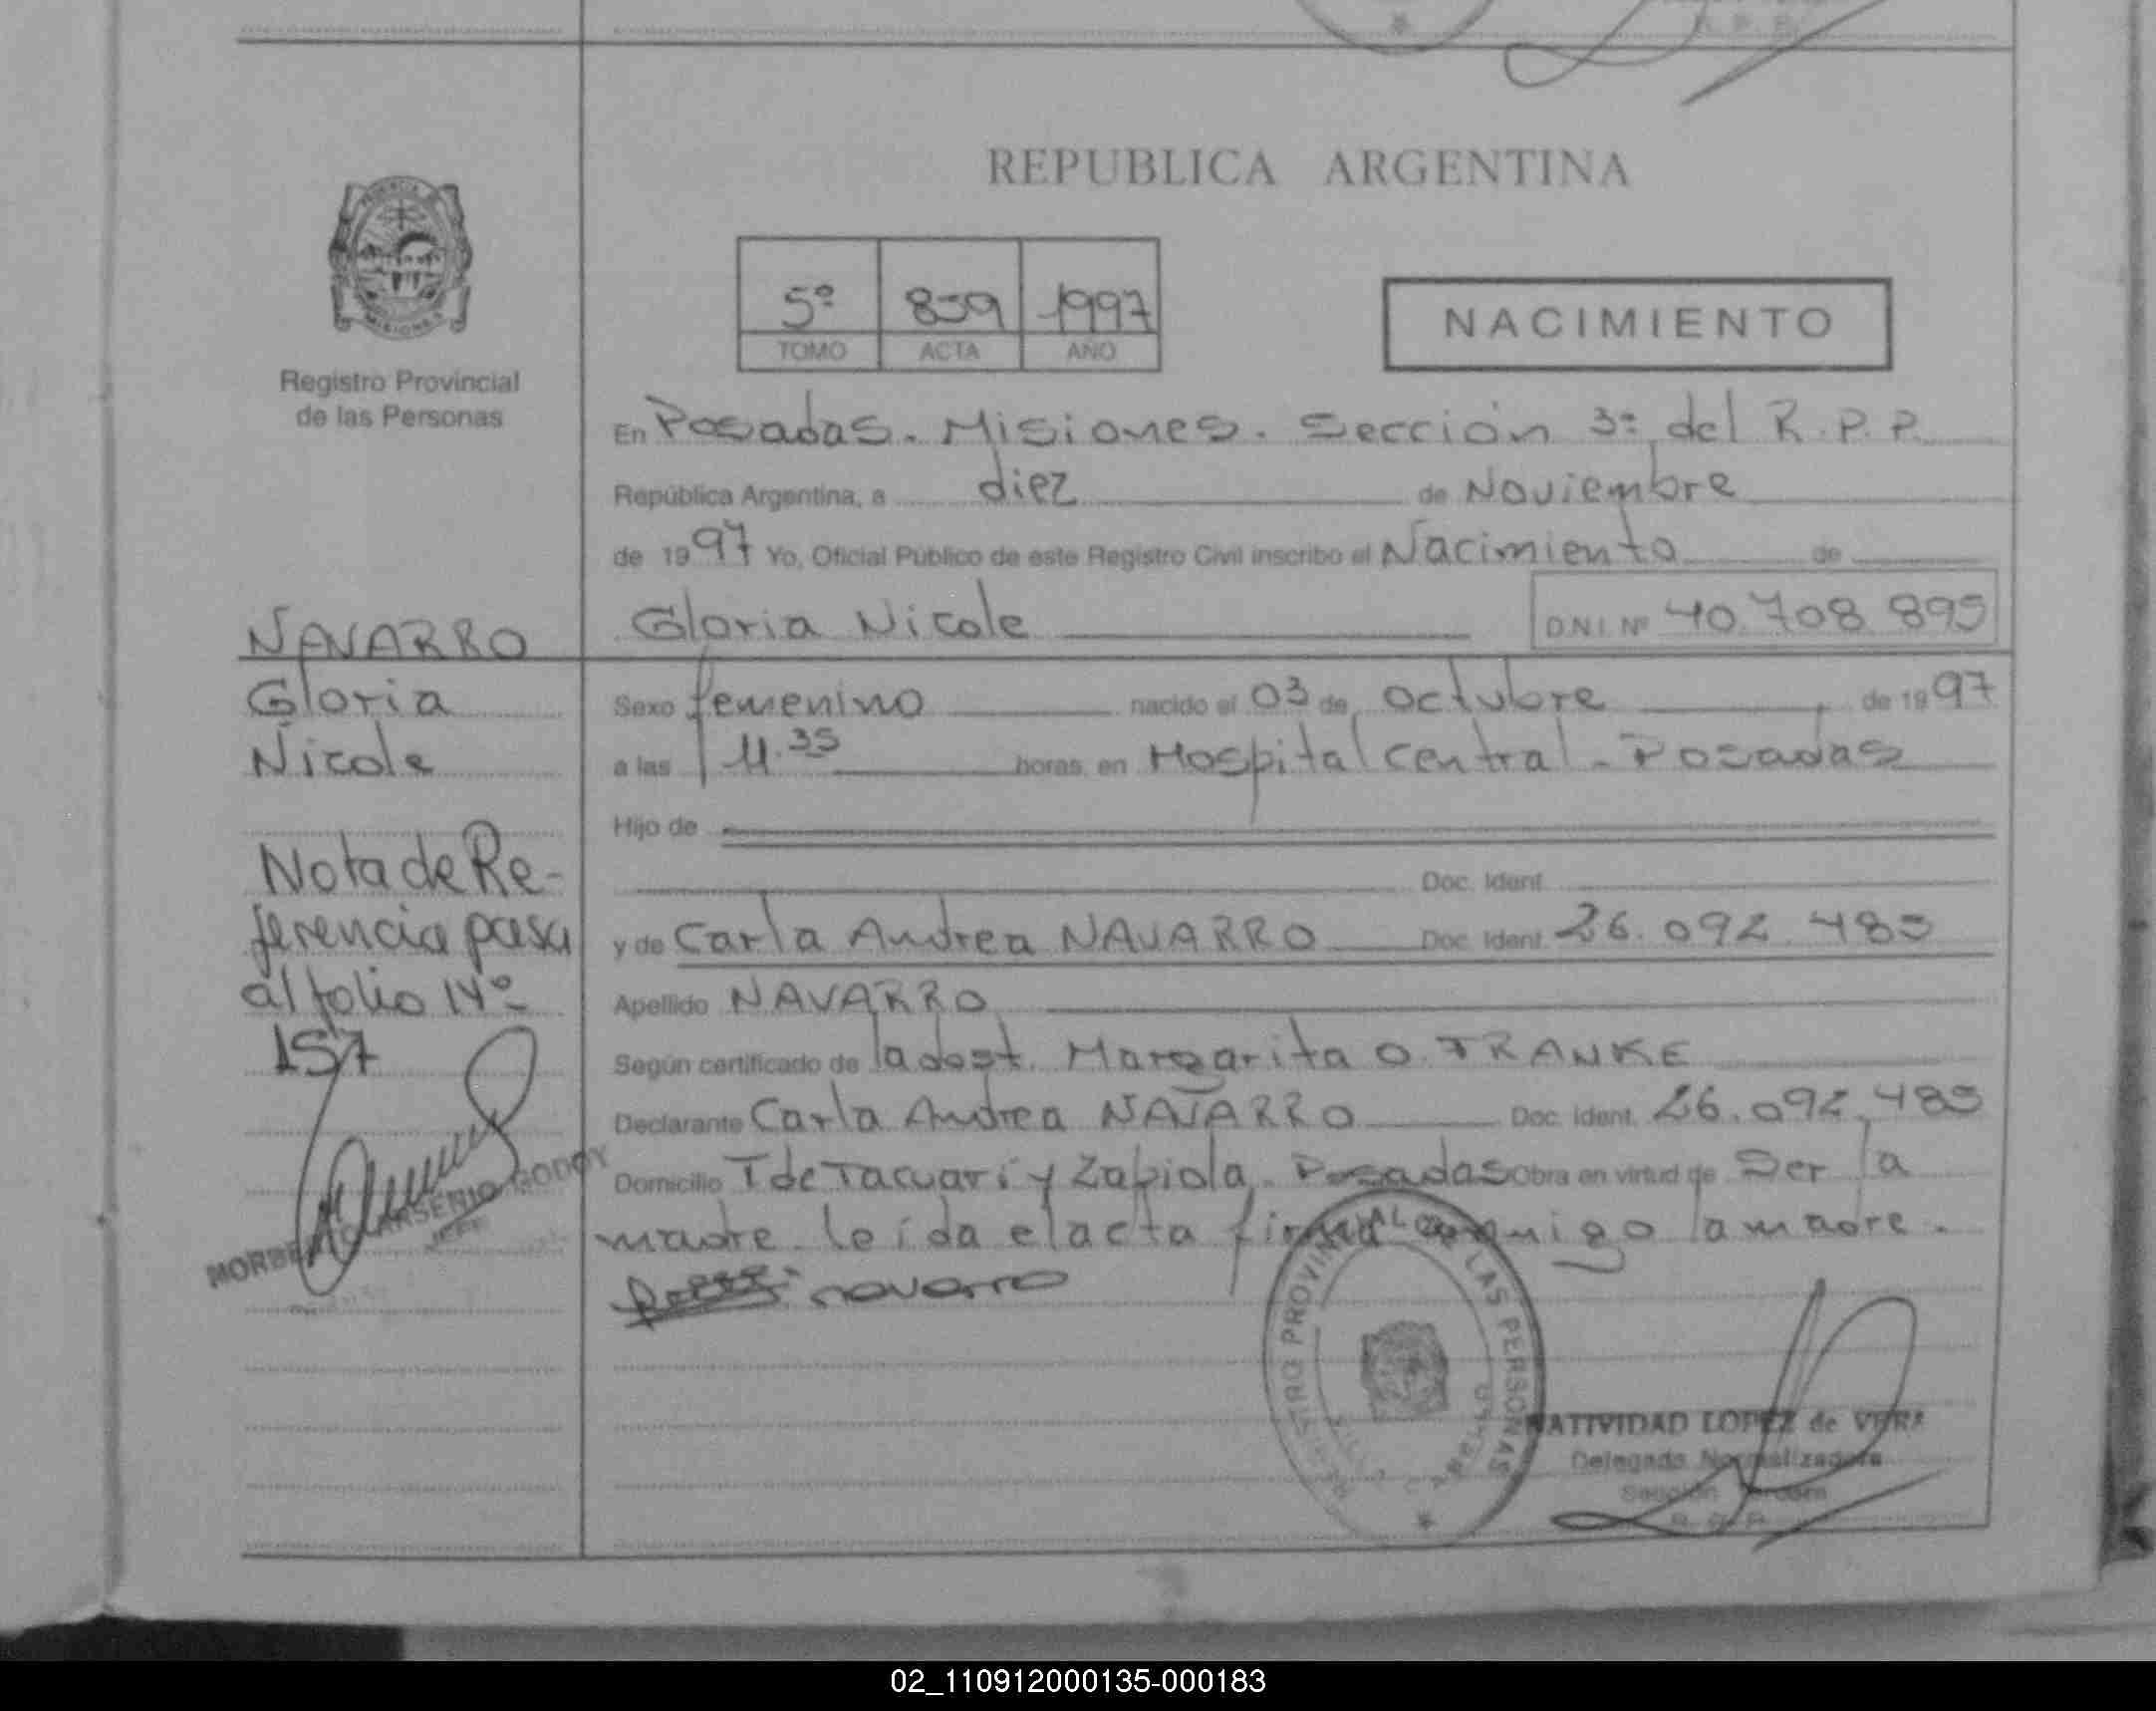 REPUBLICA ARGENTINA
Registro Provincial
de las Personas
5º 859 1997
TOMO ACTA AÑO
NACIMIENTO
En Posadas. Misiones. Sección 3ª del R.P.P.
República Argentina, a diez de Noviembre
de 1997 Yo, Oficial Público de este Registro Civil inscribo el Nacimiento de
Gloria Nicole D.N.I. Nº 40.708.895
NAVARRO
Gloria
Nicole
Sexo femenino nacido el 03 de octubre de 1997
a las 11.35 horas en Hospital central - Posadas
Hijo de
Doc. Ident.
y de Carla Andrea NAVARRO Doc. Ident. 26.092.485
Apellido NAVARRO
Según certificado de la Margarita O. FRANKE
Declarante Carla Andrea NAVARRO Doc. Ident. 26.092.485
Domicilio T de Tacuarí y Zapiola. Posadas Obra en virtud de Ser la
madre leída el acta firma conmigo la madre.
navarro
Nota de Re-
ferencia pasa
al folio Nº
157
ARSENIO GODOY
JEFE
REGISTRO PROVINCIAL DE LAS PERSONAS
NATIVIDAD LOPEZ de VERA
Delegada Normalizadora
Sección
R.P.P.
02_110912000135-000183